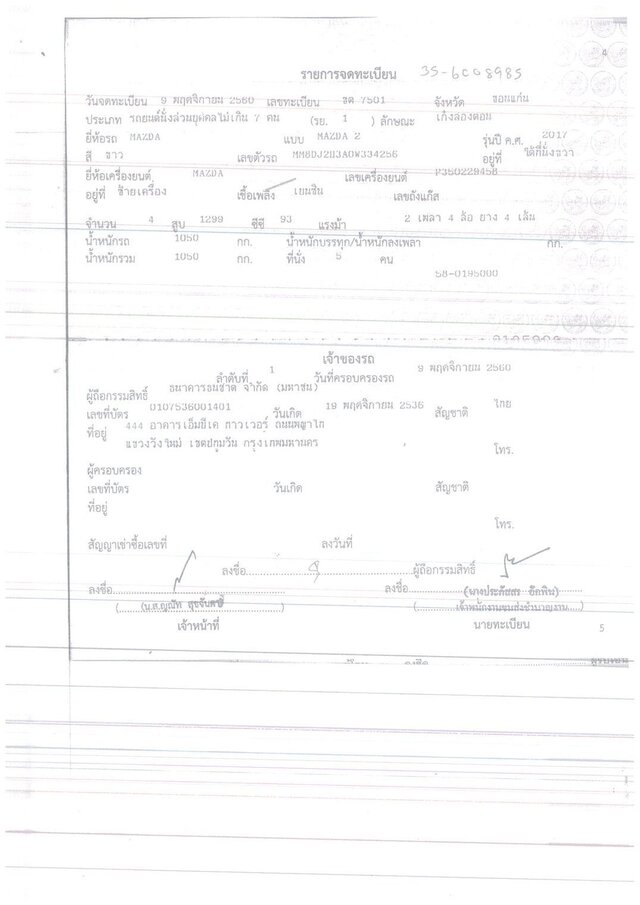 4
รายการจดทะเบียน 35-6008985
วันจดทะเบียน 9 พฤศจิกายน 2560 เลขทะเบียน ขต 7501 จังหวัด ขอนแก่น
ประเภท รถยนต์นั่งส่วนบุคคลไม่เกิน 7 คน (รย. 1 ) ลักษณะ เก๋งสองตอน
ยี่ห้อรถ MAZDA แบบ MAZDA 2 รุ่นปี ค.ศ. 2017
สี ขาว เลขตัวรถ อยู่ที่ ใต้ที่นั่งขวา
ยี่ห้อเครื่องยนต์ MAZDA เลขเครื่องยนต์ P350229458
อยู่ที่ ซ้ายเครื่อง เชื้อเพลิง เบนซิน เลขถังแก๊ส
จำนวน 4 สูบ 1299 ซีซี 93 แรงม้า 2 เพลา 4 ล้อ ยาง 4 เส้น
น้ำหนักรถ 1050 กก. น้ำหนักบรรทุก/น้ำหนักลงเพลา กก.
น้ำหนักรวม 1050 กก. ที่นั่ง 5 คน
58-0195000
เจ้าของรถ
ลำดับที่ 1 วันที่ครอบครองรถ 9 พฤศจิกายน 2560
ผู้ถือกรรมสิทธิ์ ธนาคารธนชาต จำกัด (มหาชน)
เลขที่บัตร 0107536001401 วันเกิด 19 พฤศจิกายน 2536 สัญชาติ ไทย
ที่อยู่ 444 อาคารเอ็มบีเค ทาวเวอร์ ถนนพญาไท
แขวงวังใหม่ เขตปทุมวัน กรุงเทพมหานคร โทร.
ผู้ครอบครอง
เลขที่บัตร วันเกิด สัญชาติ
ที่อยู่
โทร.
สัญญาเช่าซื้อเลขที่ ลงวันที่
ลงชื่อ ผู้ถือกรรมสิทธิ์
ลงชื่อ ลงชื่อ
(น.ส.ญณัท ) (นางประภัสสร อ๊อพิน)
เจ้าพนักงานขนส่งชำนาญงาน
เจ้าหน้าที่ นายทะเบียน 5